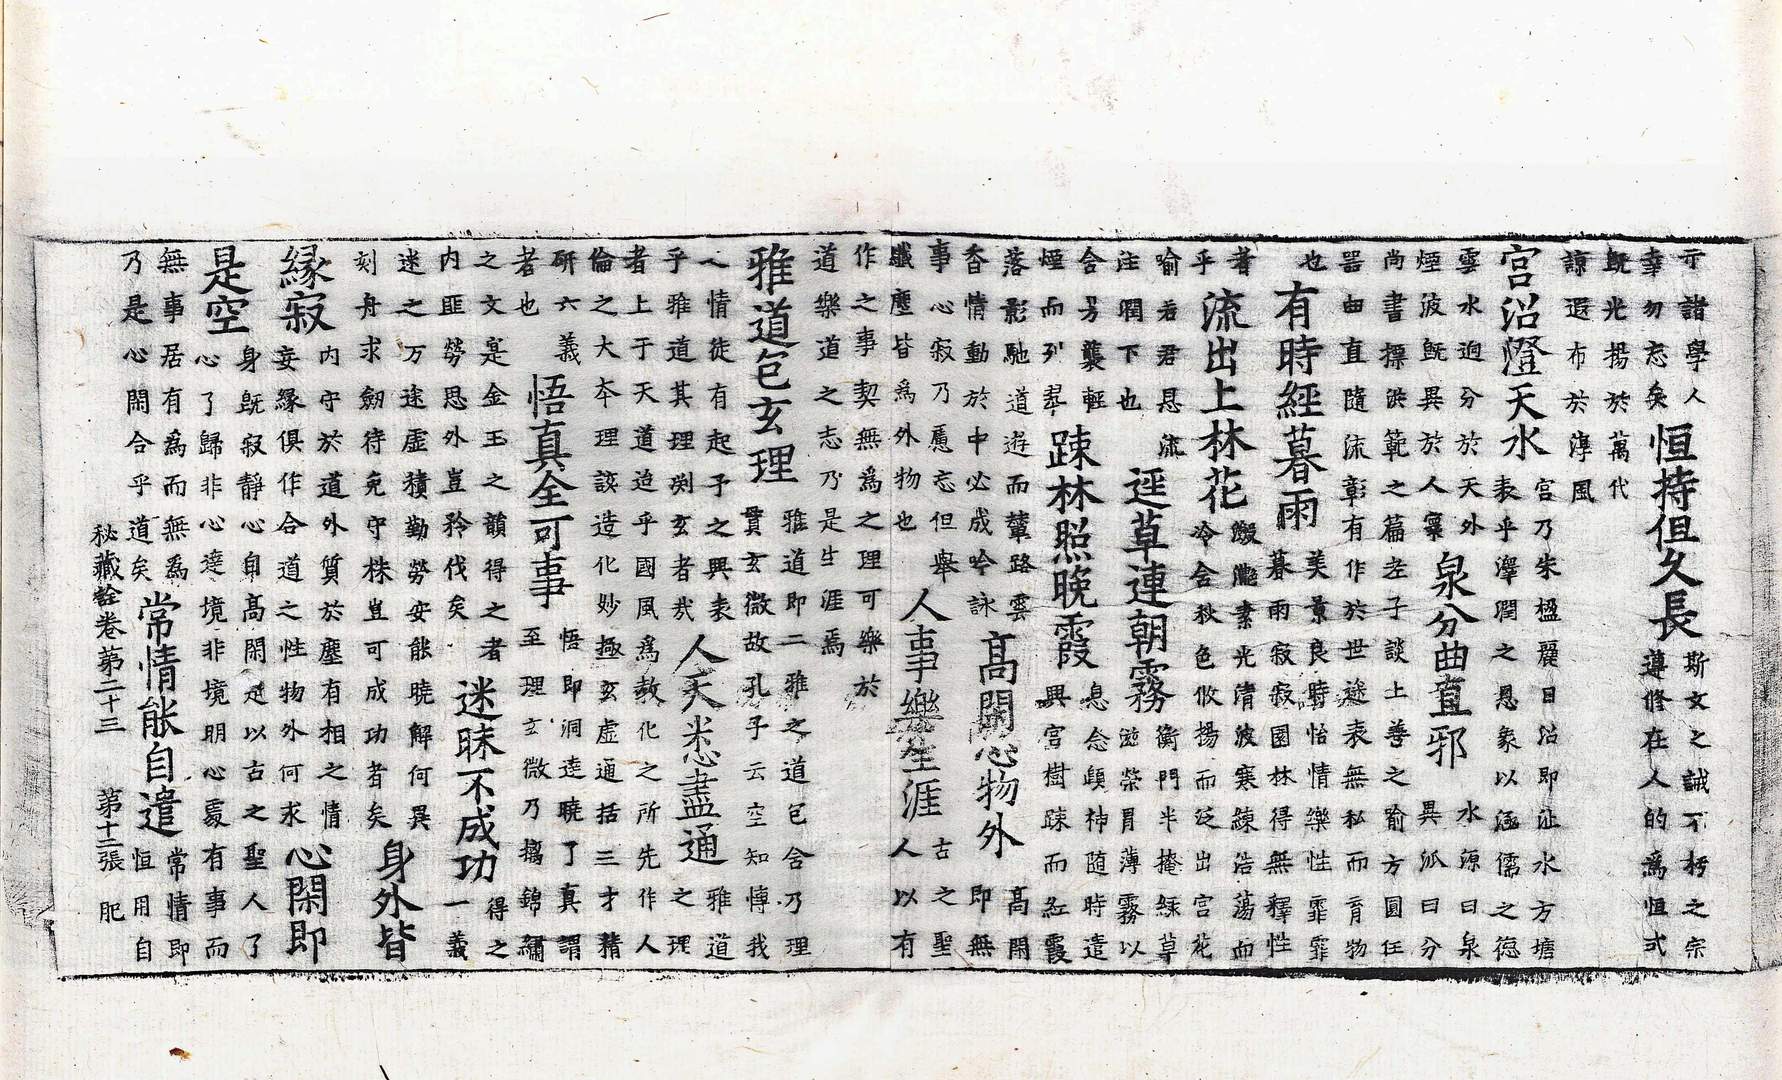 示諸學人
幸勿忘矣
恒持但久長
斯文之誠不朽之宗
遵修在人的爲恒式
旣光揚於萬代
諒遐布於淳風
宮沼澄天水
宮乃朱楹麗日沼即沚水方塘
表乎澤潤之恩象以涵儒之德
雲水逈分於天外
煙波旣異於人寰
泉分曲直邪
水源曰泉
異派曰分
尚書摽洪範之篇老子談上善之喻方圓任
器曲直隨流彰有作於世途表無私而育物
也
有時經暮雨
美景良時怡情樂性霏霏
暮雨寂寂園林得無釋性
者
乎
流出上林花
灧素光清波寒竦浩蕩而
冷含秋色攸揚而泛出宮花
喻若君恩流
注潤下也
逕草連朝霧
衡門半掩綠草
滋榮罥薄霧以
含芳襲輕
煙而列翠
踈林照晚霞
息念頤神隨時遣
興宮樹踈而紅霞
落影馳道遊而輦路雲
香情動於中必成吟詠
髙閑心物外
髙閑
即無
事心寂乃慮忘但舉
纖塵皆爲外物也
人事樂生涯
古之聖
人以有
作之事契無爲之理可樂於
道樂道之志乃是生涯焉
雅道包玄理
雅道即二雅之道包含乃理
貫玄微故孔子云空知博我
人情徒有起予之興表
乎雅道其理淵玄者哉
人天悉盡通
雅道
之理
者上于天道造乎國風爲教化之所先作人
倫之大夲理該造化妙極玄虛通括三才精
研六義
者也
悟真全可事
悟即洞達曉了真謂
至理玄微乃擒錦繡
之文寔金玉之韻得之者
內匪勞思外豈矜伐矣
迷昧不成功
得之
一義
迷之万途虛積勤勞安能曉解何異
刻舟求劒待兎守株豈可成功者矣
身外皆
緣寂
內守於道外質於塵有相之情
妄緣俱作合道之性物外何求
心閑即
是空
身旣寂靜心自髙閑是以古之聖人了
心了歸非心達境非境明心處有事而
無事居有爲而無爲
乃是心閑合乎道矣
常情能自遣
常情即
恒用自
秘藏詮卷第二十三　第十二張　肥